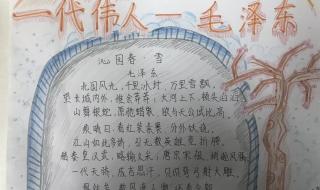 一代伟人—毛泽东
沁园春·雪
毛泽东
北国风光,千里冰封,万里雪飘,
望长城内外,惟余莽莽,大河上下,顿失滔滔,
山舞银蛇,原驰蜡象,欲与天公试比高,
须晴日,看红装素裹,分外妖娆,
江山如此多娇,引无数英雄竞折腰,
惜秦皇汉武,略输文采,唐宗宋祖,稍逊风骚,
一代天骄,成吉思汗,只识弯弓射大雕,
俱往矣,数风流人物,还看今朝